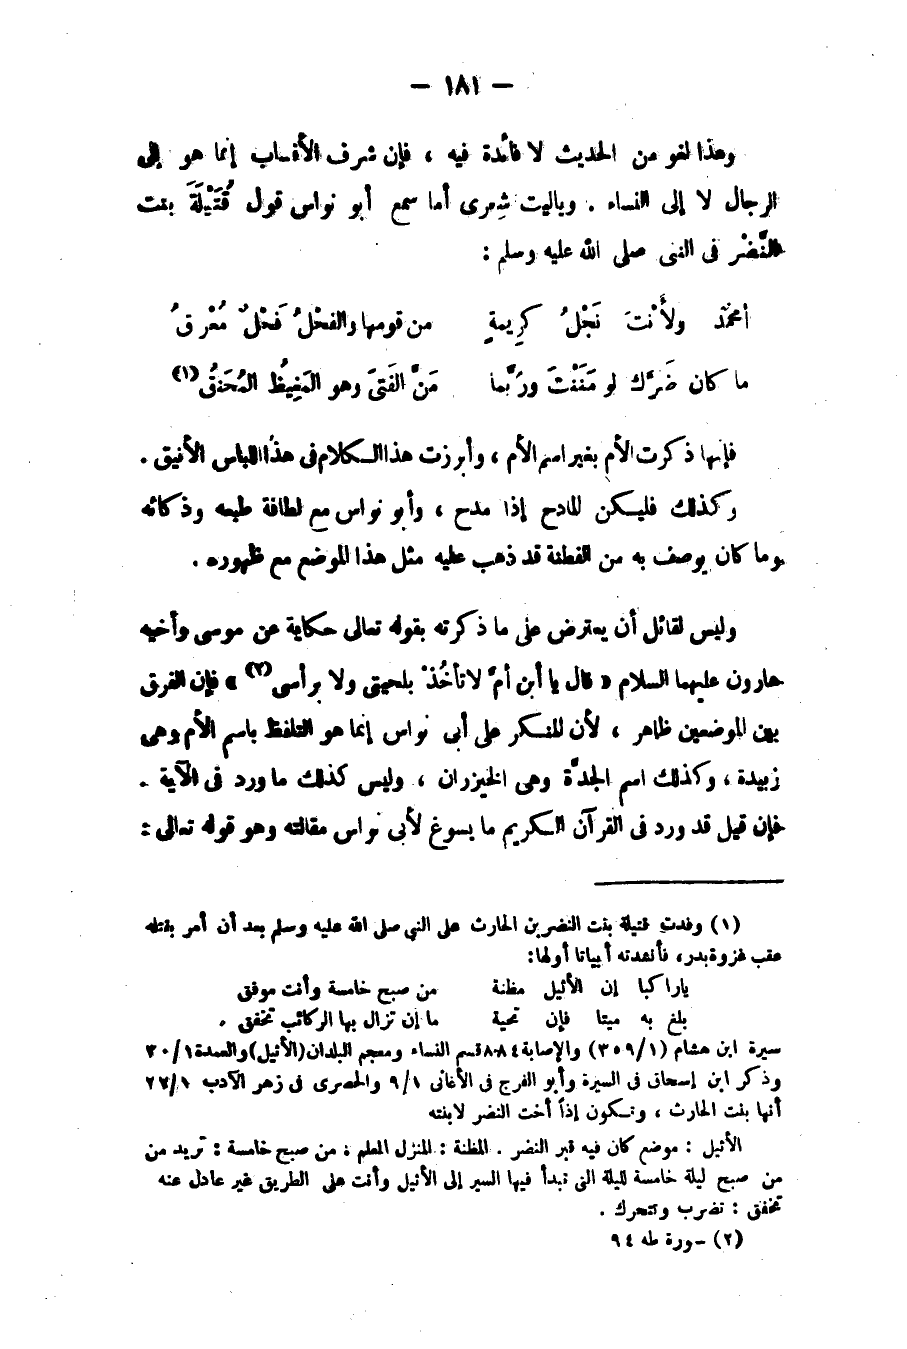 — ١٨١ —
وهذا لغو من الحديث لا فائدة فيه ، فإن شرف الأنساب إنما هو إلى
الرجال لا إلى النساء . وياليت شِعرى أما سمع أبو نواس قول قُتَيْلَةَ بنت
النَّضْر فى النبى صلى الله عليه وسلم :
أمحمّد ولأَنْتَ نَجْلُ كرِيمةٍ من قومها والفحْلُ فَحْلٌ مُعْرِقُ
ما كان ضَرَّك لو مَنَنْتَ ورُبَّما مَنَّ الفَتىَ وهو المَغِيظُ المُحَنقُ(١)
فإنها ذكرت الأم بغير اسم الأم ، وأبرزت هذا الكلام فى هذا اللباس الأنيق .
وكذلك فليكن المادح إذا مدح ، وأبو نواس مع لطافة طبعه وذكائه
وما كان يوصف به من الفطنة قد ذهب عليه مثل هذا الموضع مع ظهوره .
وليس لقائل أن يعترض على ما ذكرته بقوله تعالى حكاية عن موسى وأخيه
هارون عليهما السلام « قال يا أبن أمّ لا تأخُذْ بلحيتى ولا برأسى(٢) » فإن الفرق
بين الموضعين ظاهر ، لأن المنكر على أبى نواس إنما هو التلفظ باسم الأم وهى
زبيدة ، وكذلك اسم الجدّة وهى الخيزران ، وليس كذلك ما ورد فى الآية .
فإن قيل قد ورد فى القرآن الكريم ما يسوغ لأبى نواس مقالته وهو قوله تعالى :
(١) وفدت قتيلة بنت النضر بن الحارث على النبى صلى الله عليه وسلم بعد أن أمر بقتله
عقب غزوة بدر، فأنشدته أبياتا أولها:
ياراكبا إن الأثيل مظنة من صبح خامسة وأنت موفق
بلغ به ميتا فإن تحية ما إن تزال بها الركائب تخفق .
سيرة ابن هشام (٣٥٩/١) والإصابة ٨٨٤ قسم النساء ومعجم البلدان (الأثيل) والعمدة ٣٠/١
وذكر ابن إسحاق فى السيرة وأبو الفرج فى الأغانى ٩/١ والحصرى فى زهر الآدب ٢٧/١
أنها بنت الحارث ، وتكون إذاً أخت النضر لابنته
الأثيل : موضع كان فيه قبر النضر . المظنة : المنزل المعلم : من صبح خامسة : تريد من
من صبح ليلة خامسة لليلة التى تبدأ فيها السير إلى الأثيل وأنت على الطريق غير عادل عنه
تخفق : تضرب وتتحرك .
(٢) سورة طه ٩٤